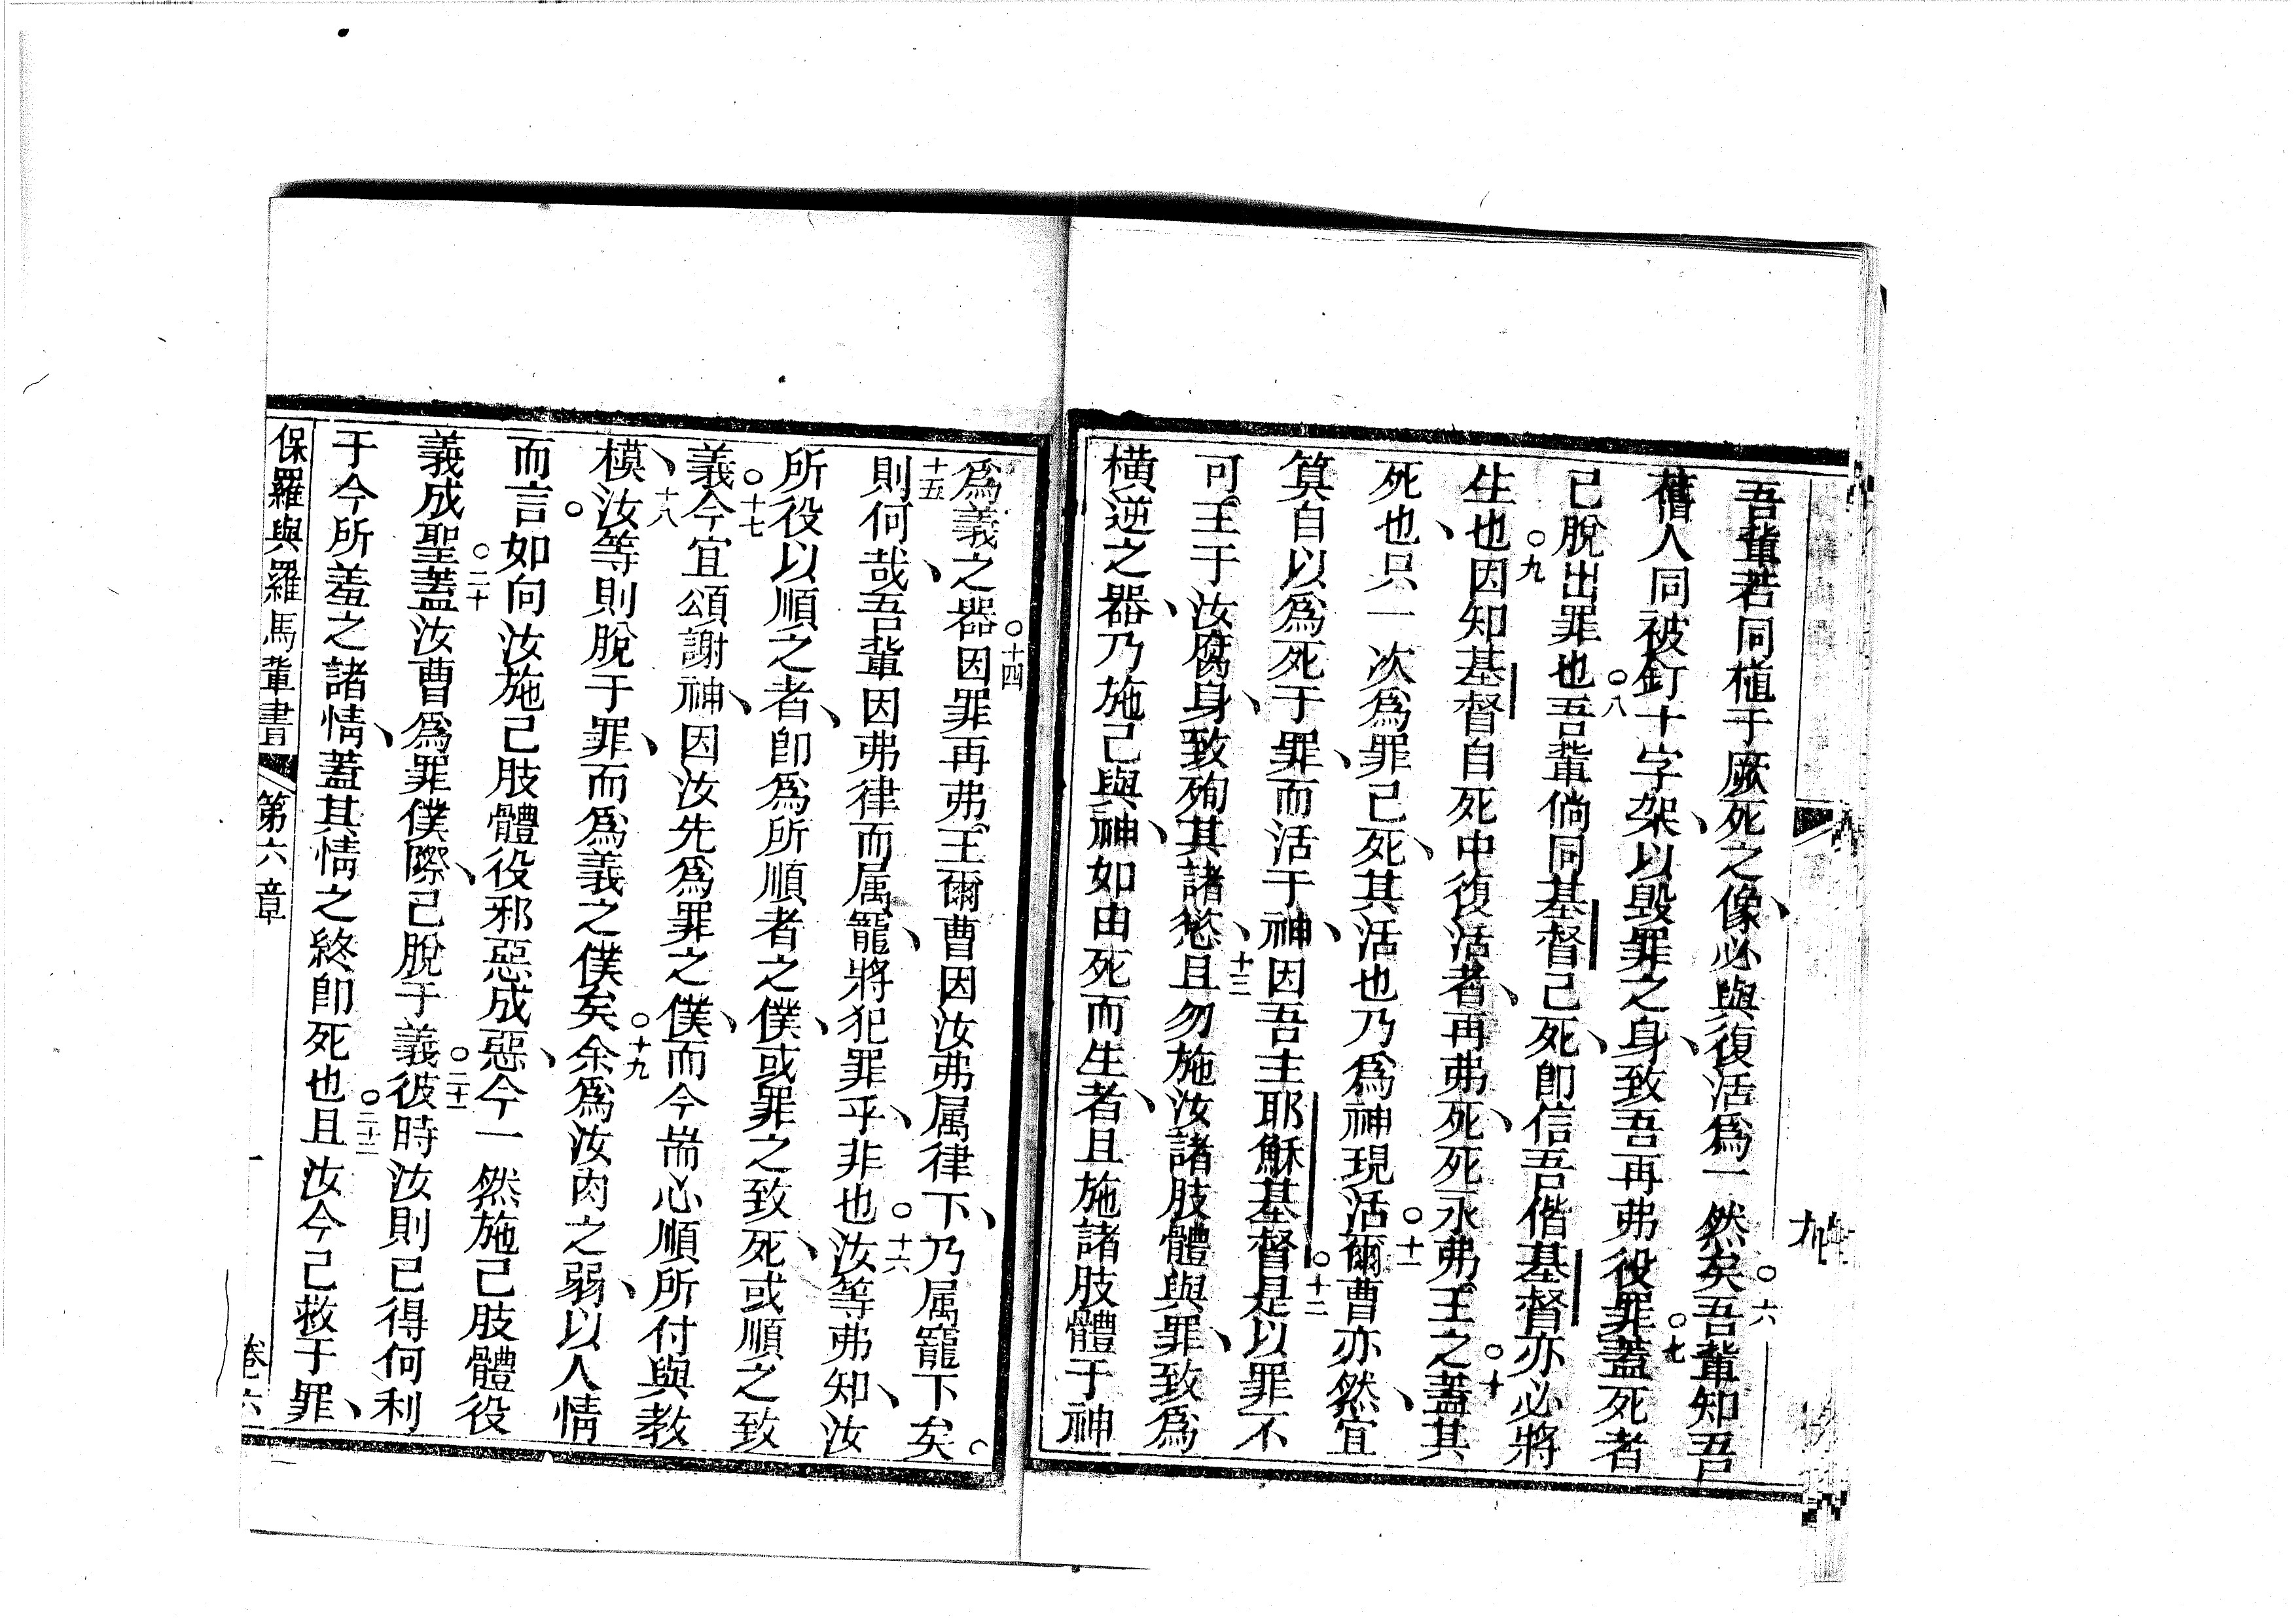 吾輩若同植于厥死之像、必與復活爲一然矣○六吾輩知吾
舊人同被釘十字架、以毁罪之身、致吾再弗役罪○七蓋死者
已脫出罪也○八吾輩倘同基督己死、即信吾偕基督亦必將
生也○九因知基督自死中復活者、再弗死、死永弗王之○十蓋其
死也、只一次爲罪己死、其活也乃爲神現活○十一爾曹亦然、宜
算自以爲死于罪、而活于神、因吾主耶穌基督○十二是以罪不
可王于汝腐身、致殉其諸慾、十三且勿施汝諸肢體與罪、致爲
橫逆之器、乃施己與神、如由死而生者、且施諸肢體于神
爲義之器○十四因罪再弗王爾曹因汝弗属律下、乃属寵下矣。
十五則何哉、吾輩因弗律而属寵、將犯罪乎、非也○十六汝等弗知、汝
所役以順之者、即爲所順者之僕、或罪之致死、或順之致
義○十七今宜頌謝神、因汝先爲罪之僕、而今耑心順所付與教
模、十八汝等則脫于罪、而爲義之僕矣○十九余爲汝肉之弱、以人情
而言。如向汝施己肢體役邪惡成惡、今一然施己肢體役
義成聖○二十蓋汝曹爲罪僕際、己脫于義○二十一彼時汝則已得何利
于今所羞之諸情、蓋其情之終即死也○二十二且汝今己救于罪、
保羅與羅馬輩書 第六章 卷六